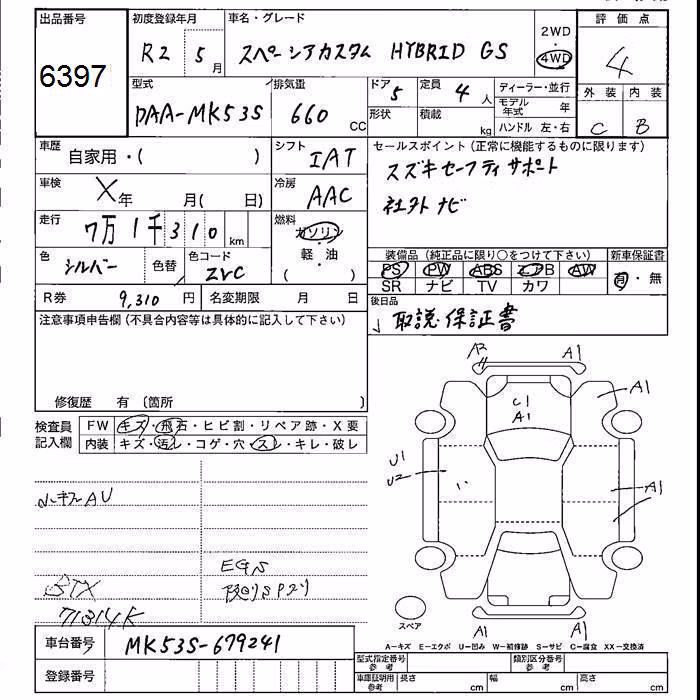 出品番号 初度登録年月 車名・グレード 2WD 評価点
6397 R2 5月 スペーシアカスタム HYBRID GS 4WD 4
型式 排気量 ドア 5 定員 4人 ディーラー・並行 外装 内装
DAA-MK53S 660 CC 形状 積載 kg モデル年式 年 C B
ハンドル 左・右
車歴 自家用・( ) シフト IAT セールスポイント (正常に機能するものに限ります)
スズキセーフティサポート
車検 X年 月( 日) 冷房 AAC 社外ナビ
走行 7万1千310 km 燃料 ガソリン・軽油 ( )
色 シルバー 色替 色コード ZVC 装備品 (純正品に限り○をつけて下さい) 新車保証書
PS PW ABS エアB AW 有・無
SR ナビ TV カワ
R券 9,310 円 名変期限 月 日 後日品
取説・保証書
注意事項申告欄 (不具合内容等は具体的に記入して下さい)
修復歴 有 (箇所 )
検査員記入欄 FW キズ・飛石・ヒビ割・リペア跡・X要
内装 キズ・汚れ・コゲ・穴・スレ・キレ・破レ
A2 A1
C1
A1
A1
U1
U2
A1
A1 A1
スペア
EGS
71314K
A-キズ E-エクボ U-凹み W-補修跡 S-サビ C-腐食 XX-交換済
車台番号 MK53S-679241
登録番号
型式指定番号 参考 類別区分番号 参考
車庫証明用 参考 長さ cm 幅 cm 高さ cm